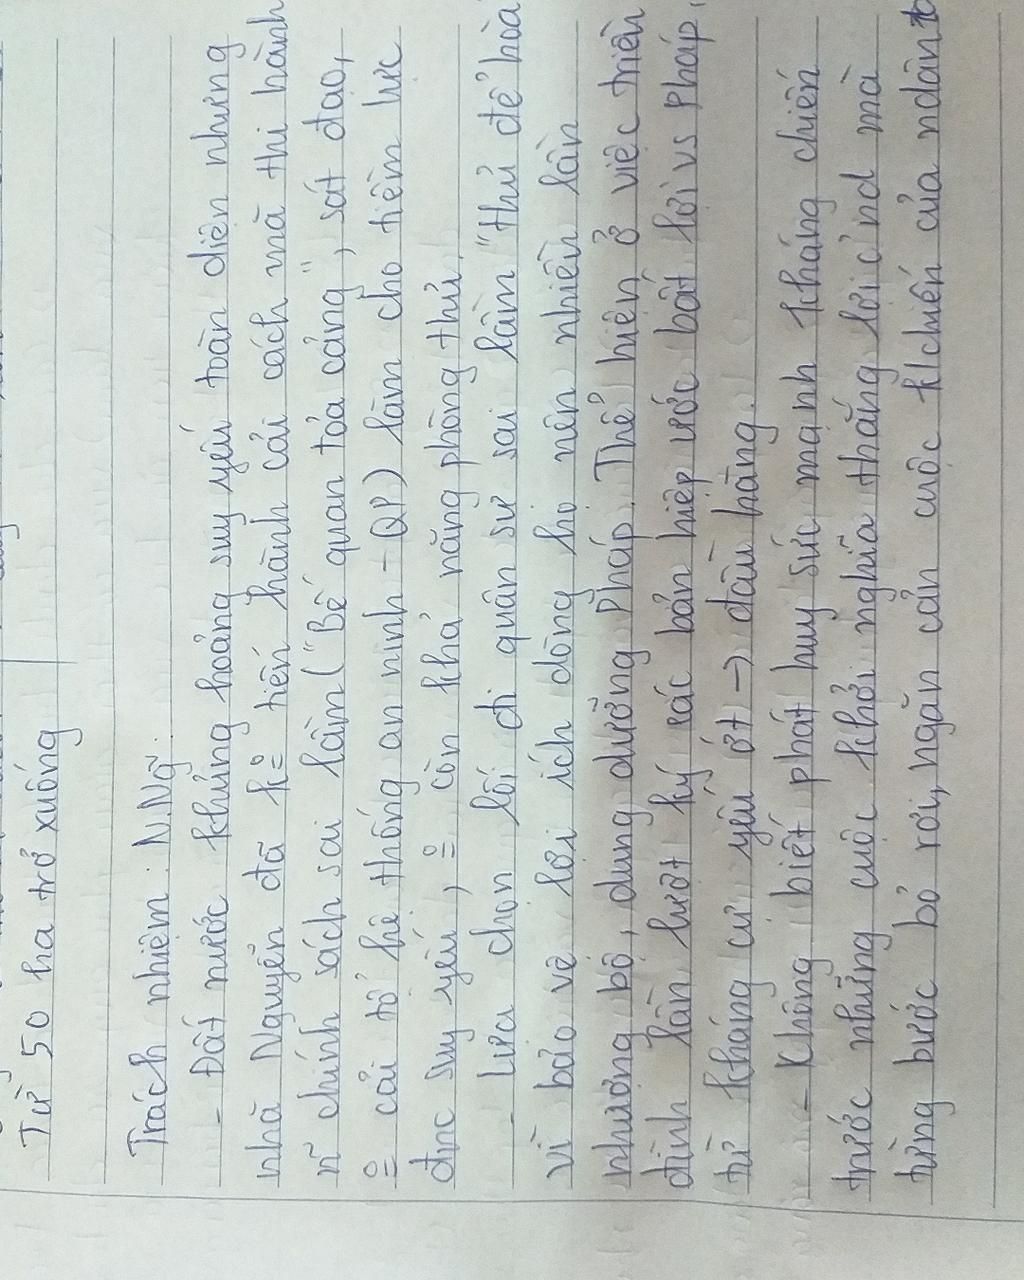 Từ 50 ha trở xuống
Trách nhiệm: N.Ng~
- Đất nước khủng hoảng suy yếu toàn diện nhưng
nhà Nguyễn đã k° tiến hành cải cách mà thi hành
n~ chính sách sai lầm ("Bế quan tỏa cảng", sát đạo,
k° cải tổ hệ thống an ninh - QP) làm cho tiềm lực
đnc suy yếu, k° còn khả năng phòng thủ.
- Lựa chọn lối đi quân sự sai lầm "thủ để hòa"
vì bảo vệ lợi ích dòng họ nên nhiều lần
nhượng bộ, dung dưỡng Pháp. Thể hiện ở việc triều
đình lần lượt ký các bản hiệp ước bất lợi vs Pháp,
từ kháng cự yếu ớt → đầu hàng.
- Không biết phát huy sức mạnh kháng chiến
trước những cuộc khởi nghĩa thắng lợi củnd mà
từng bước bỏ rơi, ngăn cản cuộc k/chiến của ndân ta